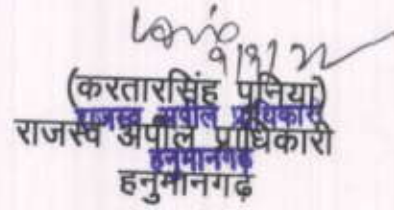 9/9/22
(करतारसिंह पूनिया)
राजस्व अपील प्राधिकारी
राजस्व अपील प्राधिकारी
हनुमानगढ़
हनुमानगढ़